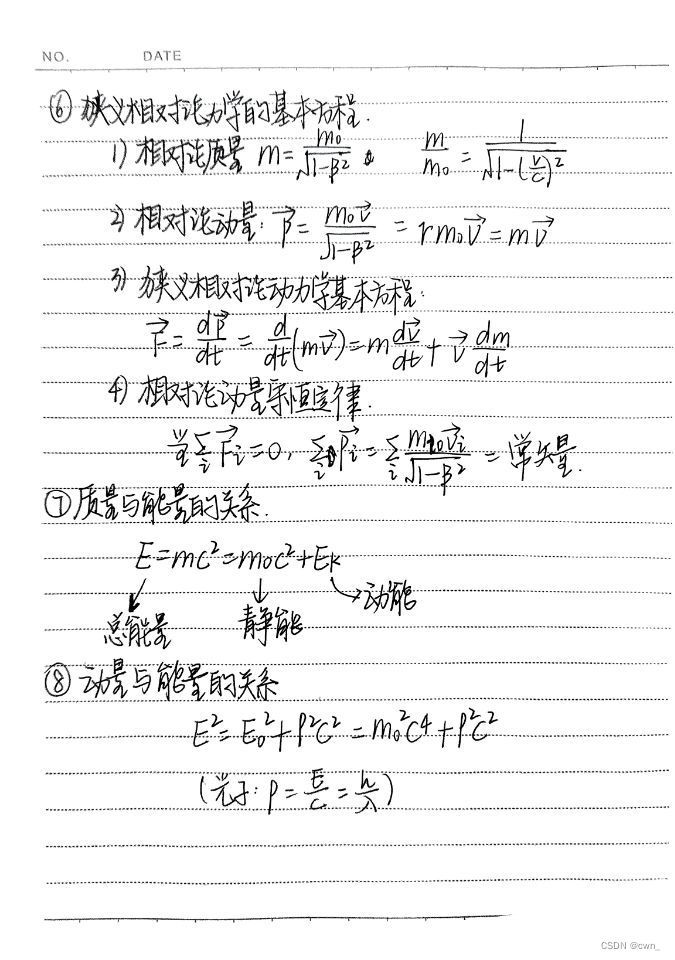 NO. DATE
⑥ 狭义相对论力学的基本方程.
1) 相对论质量 m = m₀/√(1-β²) . m/m₀ = 1/√(1-(v/c)²)
2) 相对论动量: p⃗ = m₀v⃗/√(1-β²) = rm₀v⃗ = mv⃗
3) 狭义相对论动力学基本方程:
F⃗ = dp⃗/dt = d/dt(mv⃗) = m dv⃗/dt + v⃗ dm/dt
4) 相对论动量守恒定律.
当∑ᵢF⃗ᵢ=0, ∑ᵢp⃗ᵢ = ∑ᵢ mᵢ₀v⃗ᵢ/√(1-β²) = 常矢量.
⑦ 质量与能量的关系.
E = mc² = m₀c² + Ek
总能量 静能 动能
⑧ 动量与能量的关系
E² = E₀² + p²c² = m₀²c⁴ + p²c²
(光子: p = E/c = h/λ)
CSDN @cwn_